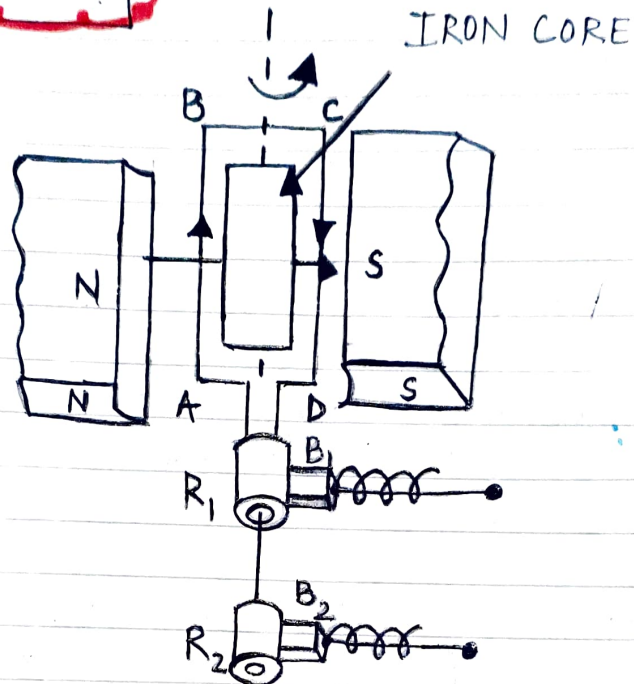 IRON CORE
B
C
N
S
N
A
D
S
B1
R1
B2
R2